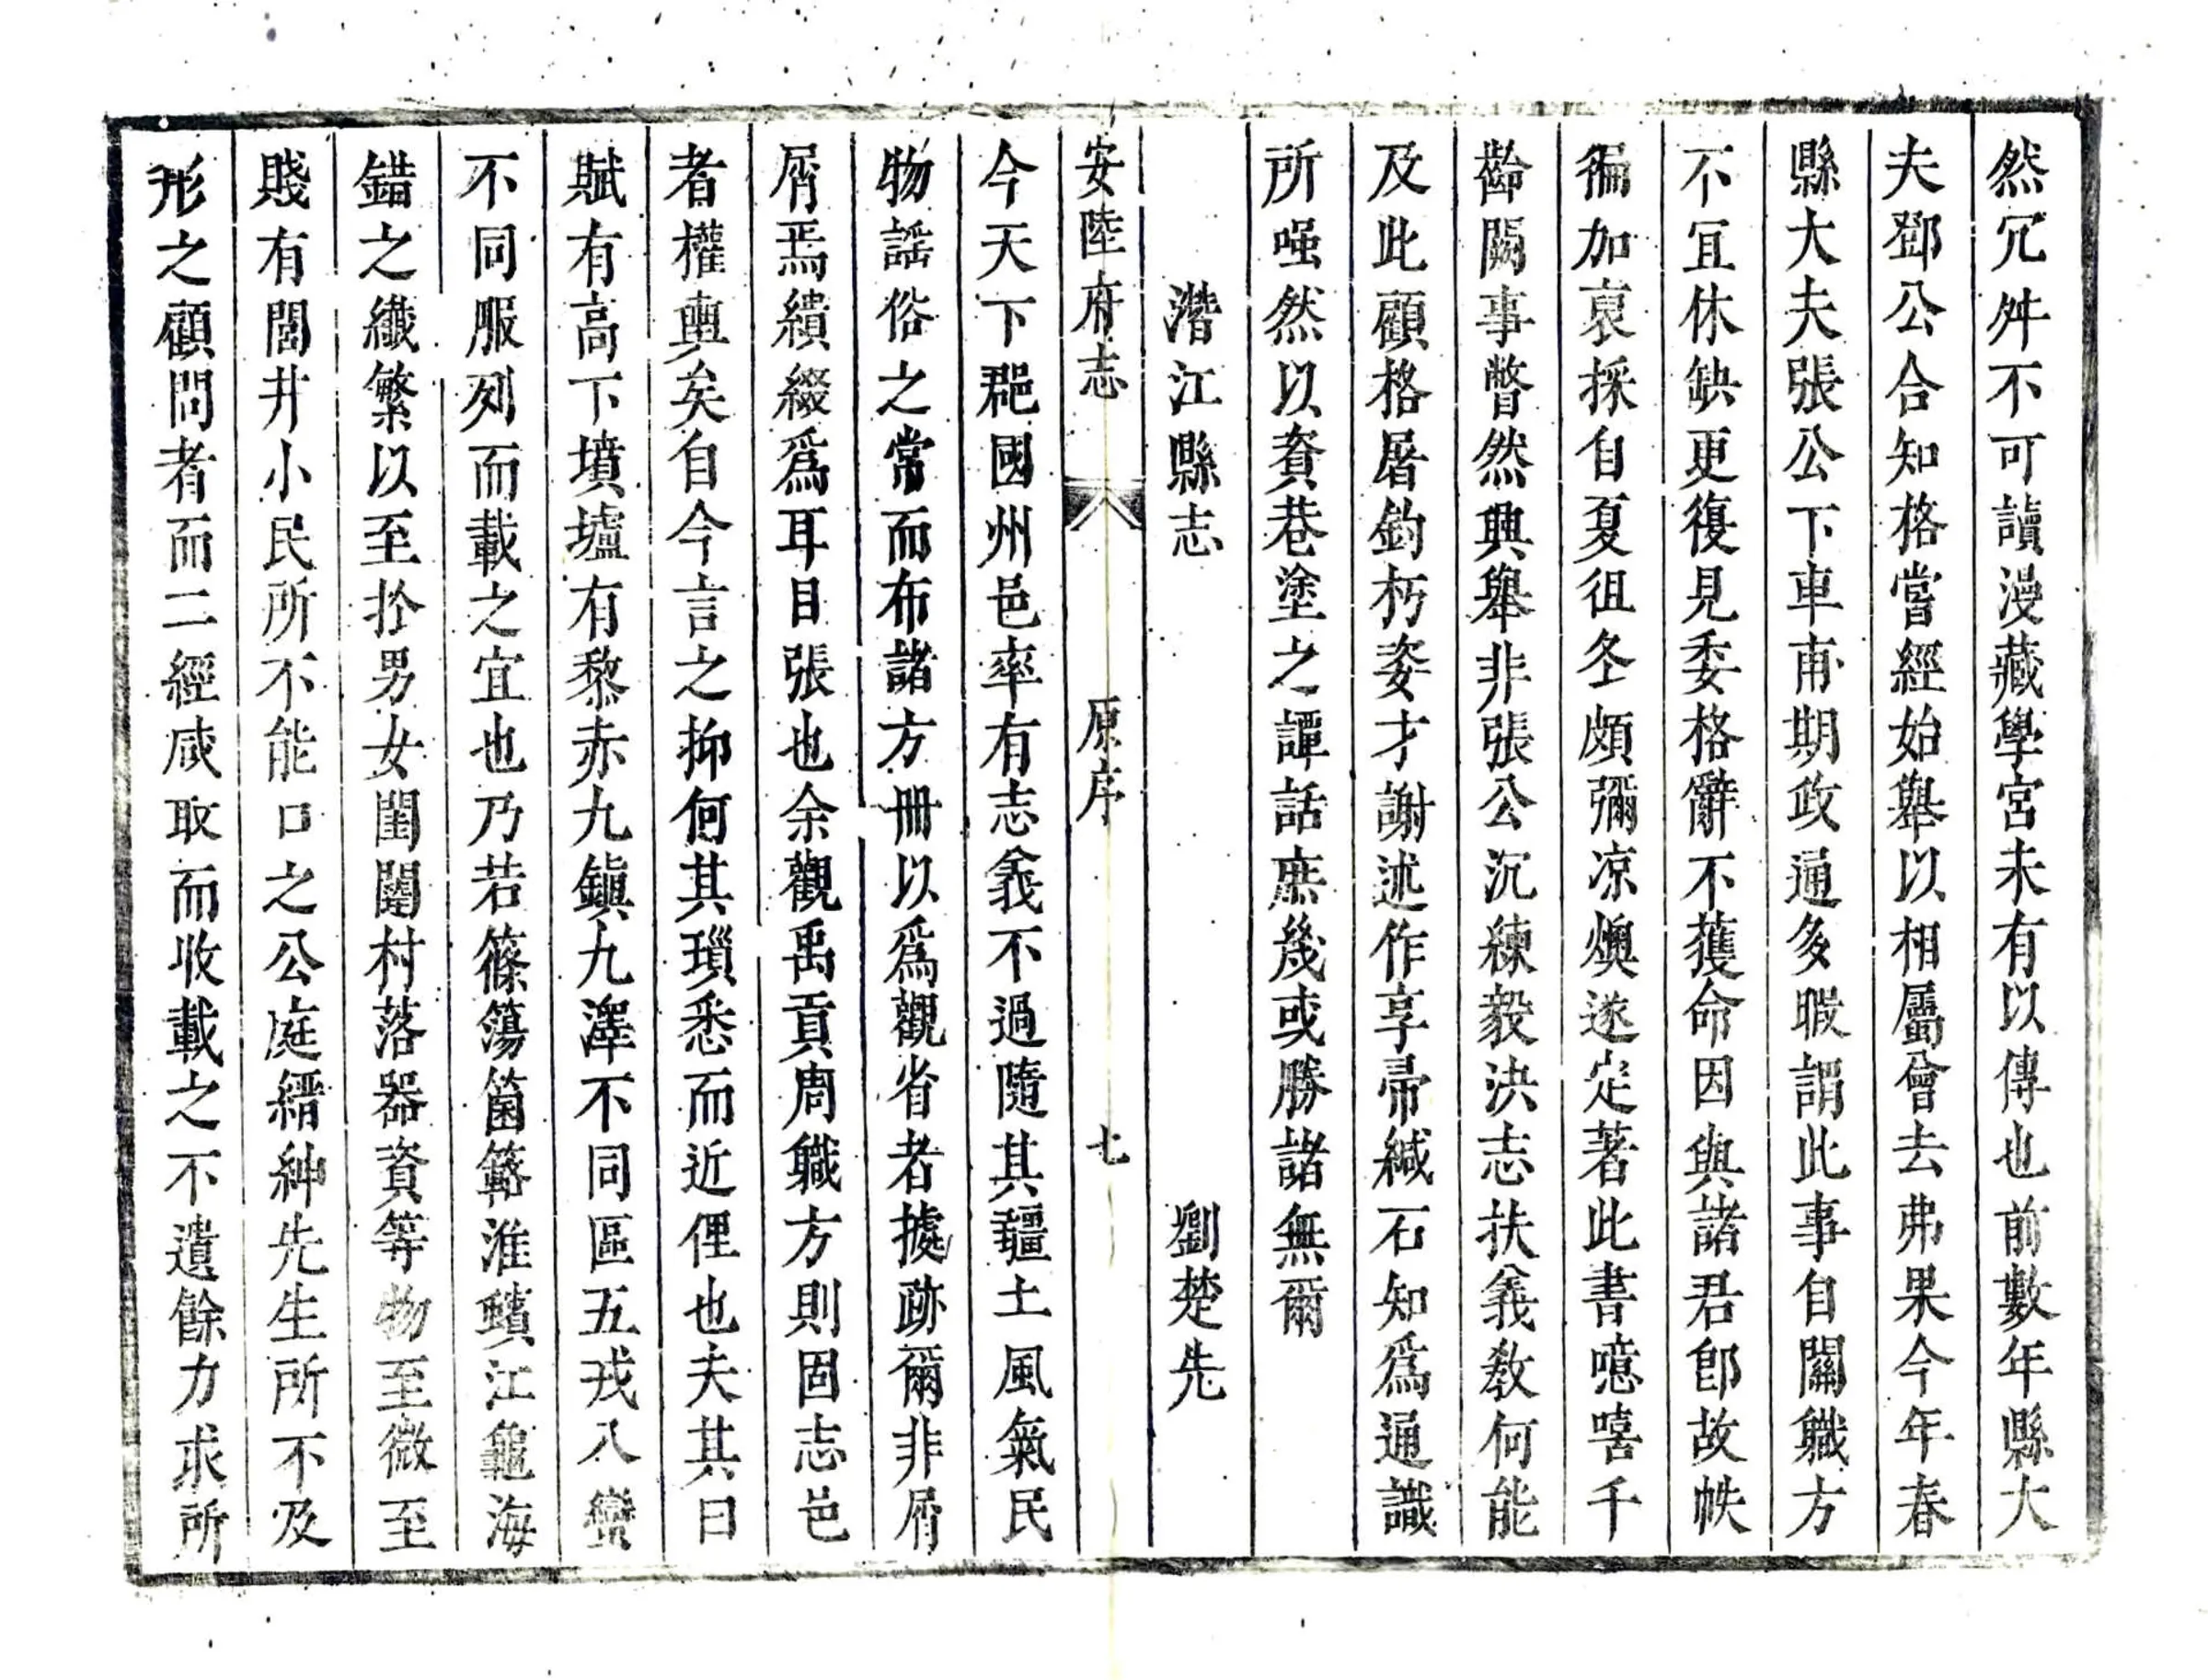 然冗舛不可讀漫藏學宮未有以傳也前數年縣大
夫鄧公合知格嘗經始舉以相屬會去弗果今年春
縣大夫張公下車甫期政通多暇謂此事自關職方
不宜休缺更復見委格辭不獲命因與諸君卽故帙
徧加裒採自夏徂冬頗彌凉燠遂定著此書噫嘻千
齡闕事瞥然典舉非張公沉練毅決志扶義敎何能
及此顧格屠釣朽姿才謝述作享帚緘石知爲通識
所嗤然以賚巷塗之譚話庶幾或勝諸無爾
潛江縣志 劉楚先
安陸府志 原序 七
今天下郡國州邑率有志義不過隨其疆土風氣民
物謡俗之常而布諸方册以爲觀省者據跡爾非屑
屑焉績綴爲耳目張也余觀禹貢周職方則固志邑
者權輿矣自今言之抑何其瑣悉而近俚也夫其曰
賦有高下墳壚有黎赤九鎭九澤不同區五戎八蠻
不同服列而載之宜也乃若篠簜箘簵淮蠙江龜海
錯之纖繁以至於男女閨闥村落器資等物至微至
賤有閭井小民所不能口之公庭縉紳先生所不及
形之顧問者而二經咸取而收載之不遺餘力求所